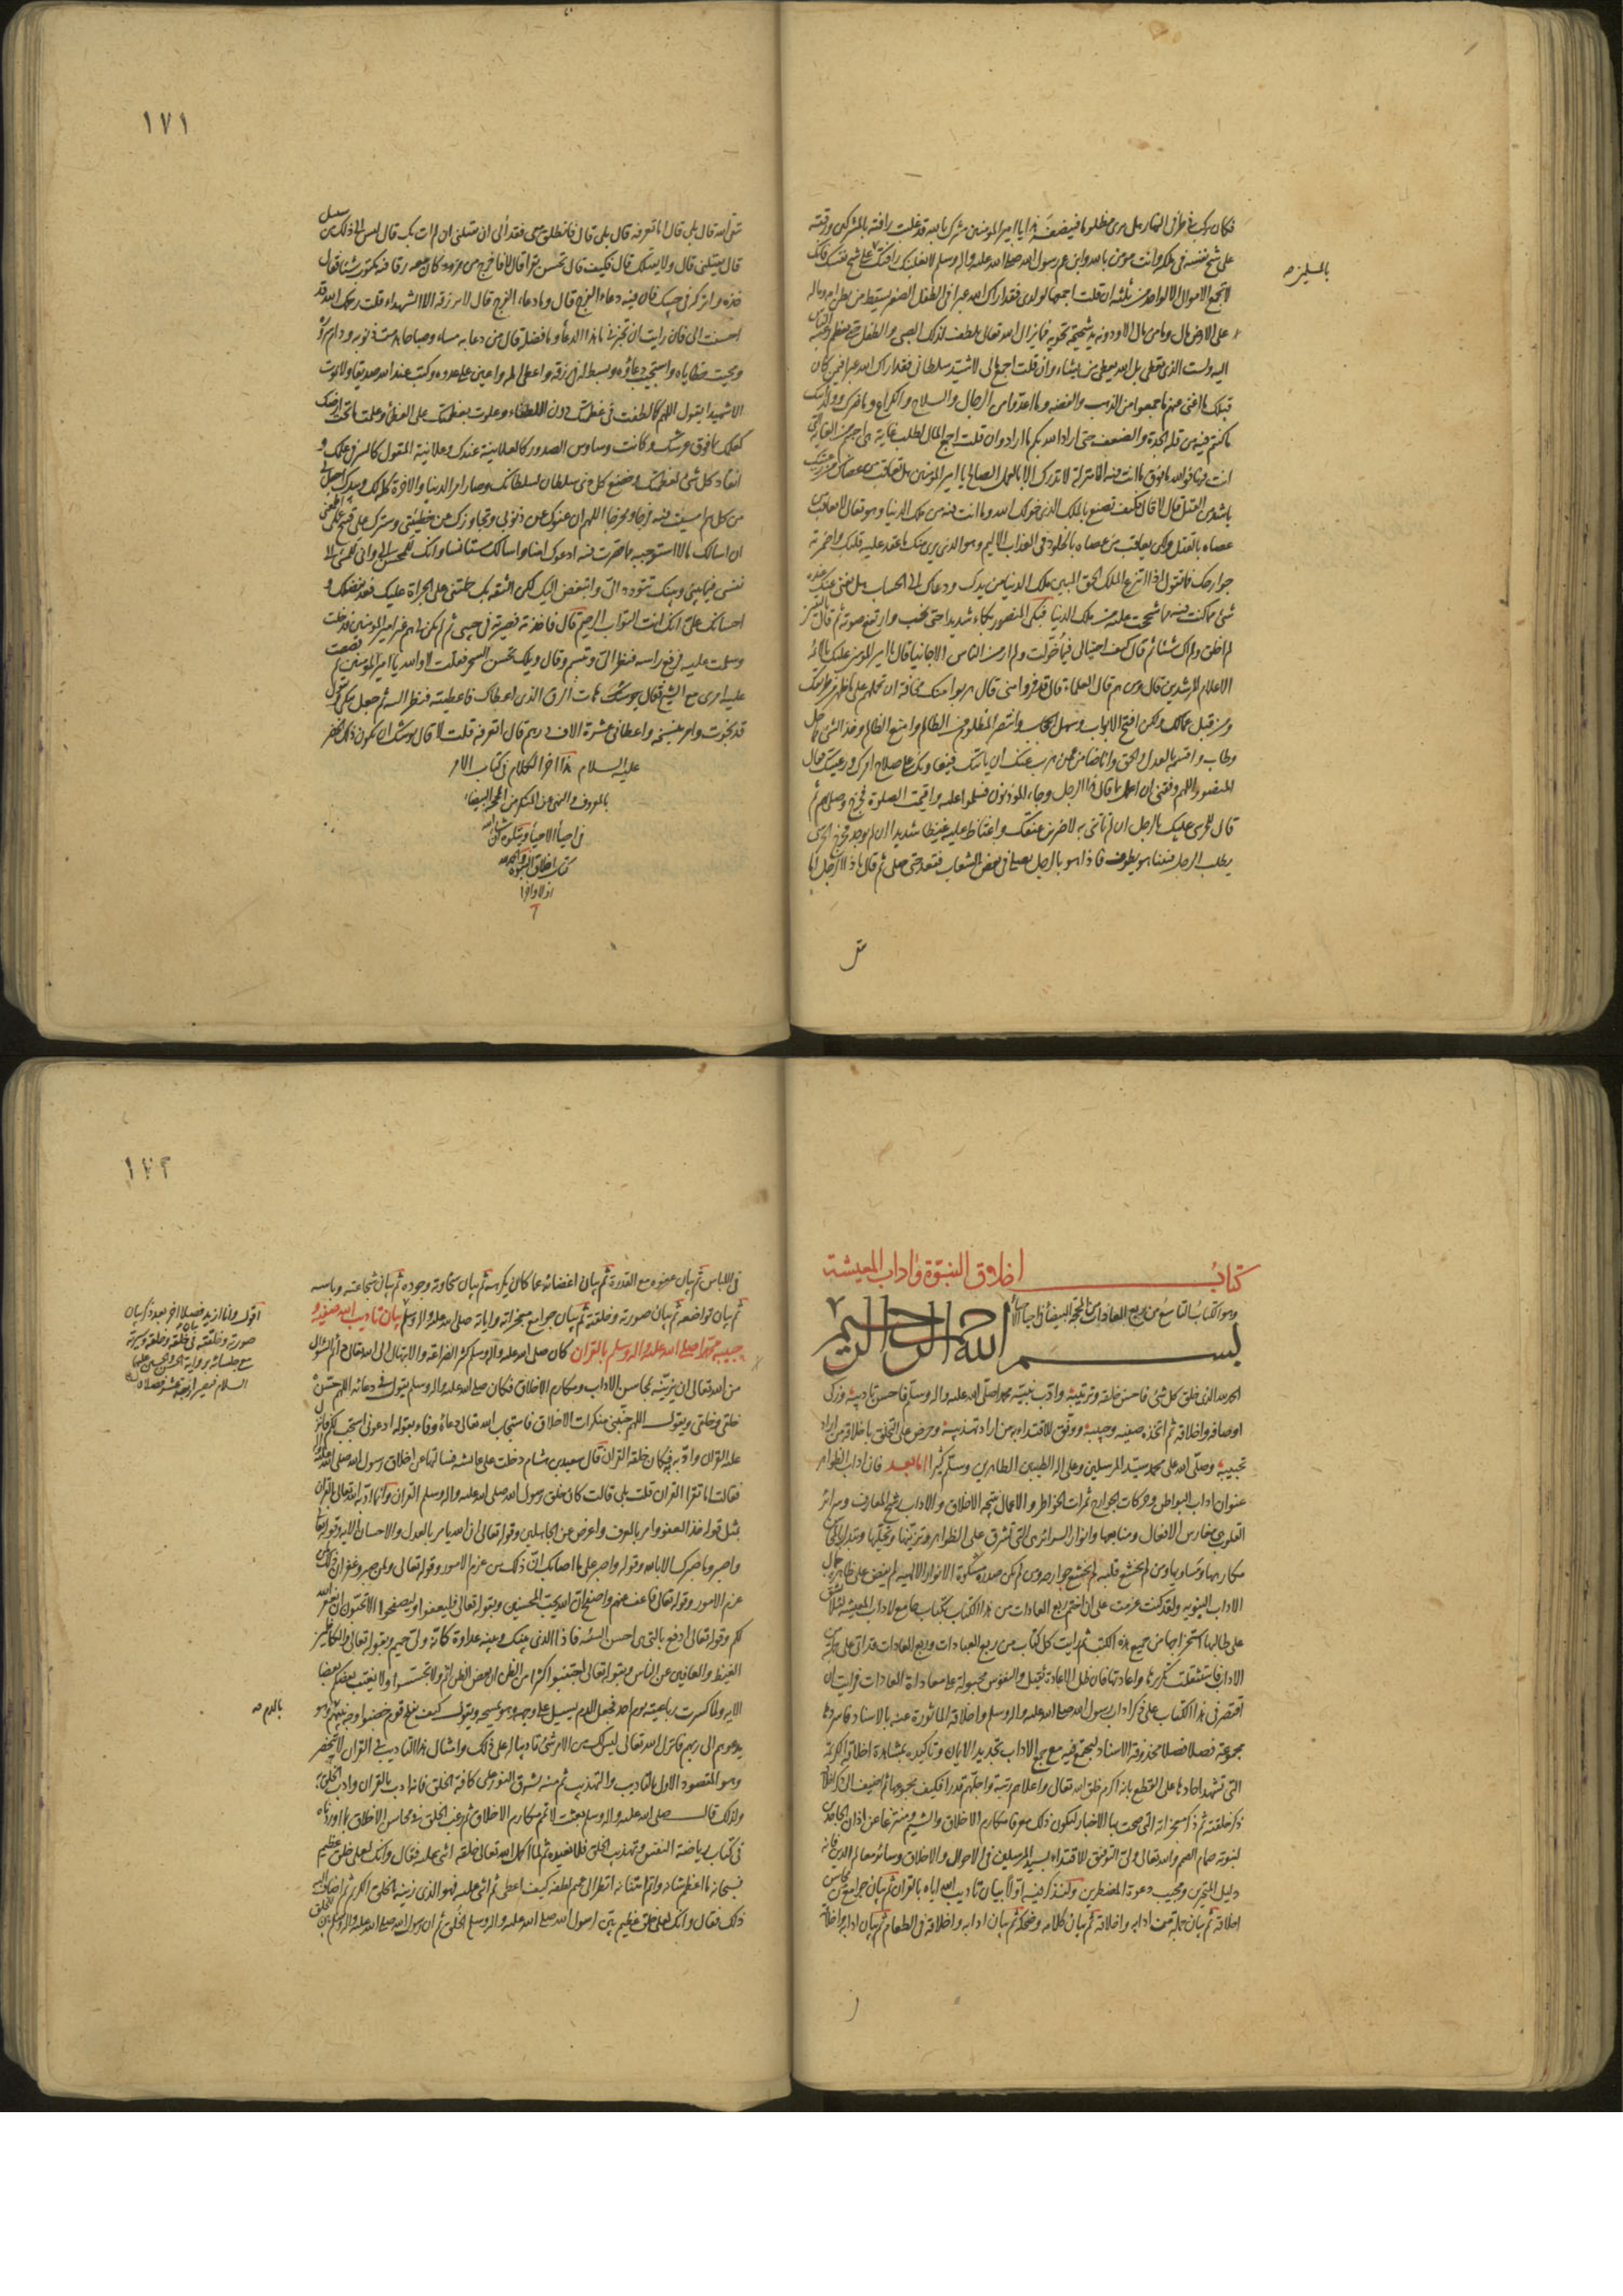 فكان يركب في طرفي النهار هل يرى مظلوما فينصفه هذا يا امير المؤمنين مشرك بالله قد غلبت رافته بالمشركين ورقته
على شح نفسه في ملكه وانت مؤمن بالله وابن عم رسول الله صلى الله عليه واله وسلم لا تغلبك رافتك على شح نفسك فانك
بالمسلمين صح
لا تجمع الاموال الا لواحد من ثلثة ان قلت اجمعها لولدي فقد اراك الله عبرا في الطفل الصغير يسقط من بطن امه وماله
على الارض مال وما من مال الا ودونه يد شحيحة تحويه فما يزال الله تعالى يلطف لذلك الطفل حتى تعظم رغبة الناس
اليه ولست الذي تعطي بل الله يعطي من يشاء وان قلت اجمع المال لاشيد سلطاني فقد اراك الله عبرا فيمن كان
قبلك ما اغنى عنهم ما جمعوا من الذهب والفضة وما اعدوا من الرجال والسلاح والكراع وما ضرك وولد ابيك
ما كنتم فيه من قلة الجدة والضعف حتى اراد الله بكم ما اراد وان قلت اجمع المال لطلب غاية هي اجسم من الغاية التي
انت فيها فوالله ما فوق ما انت فيه الا منزلة لا تدرك الا بالعمل الصالح يا امير المؤمنين هل تعاقب من عصاك من رعيتك
باشد من القتل قال لا قال فكيف تصنع بالملك الذي خولك الله وما انت فيه من ملك الدنيا وهو تعالى لا يعاقب من
عصاه بالقتل ولكن يعاقب من عصاه بالخلود في العذاب الاليم وهو الذي يرى منك ما عقد عليه قلبك واضمرته
جوارحك فما تقول اذا انتزع الملك الحق المبين ملك الدنيا من يدك ودعاك الى الحساب هل يغني عنك عنده
شيء مما كنت فيه مما شححت عليه من ملك الدنيا فبكى المنصور بكاء شديدا حتى نحب وارتفع صوته ثم قال يا ليتني
لم اخلق ولم اك شيئا ثم قال كيف احتيالي فيما خولت ولم ار من الناس الا خائنا قال يا امير المؤمنين عليك بالائمة
الاعلام المرشدين قال ومن هم قال العلماء قال قد فروا مني قال هربوا منك مخافة ان تحملهم على ما ظهر من طريقتك
ومن قبل عمالك ولكن افتح الابواب وسهل الحجاب وانتصر للمظلوم من الظالم وامنع الظالم وخذ الشيء مما حل
وطاب واقسمه بالعدل والحق وانا ضامن عمن هرب عنك ان ياتيك فيعاونك على صلاح امرك ورعيتك فقال
المنصور اللهم وفقني ان اعمل بما قال هذا الرجل وجاء المؤذنون فسلموا عليه واقيمت الصلوة فخرج وصلى بهم ثم
قال للحرسي عليك بالرجل ان لم تاتني به لاضربن عنقك واغتاظ عليه غيظا شديدا ان لم يوجد فخرج الحرسي
يطلب الرجل فبينا هو يطوف فاذا هو بالرجل يصلي في بعض الشعاب فقعد حتى صلى ثم قال يا ذا الرجل اما
١٧١
تتقي الله قال بلى قال اما تعرفه قال بلى قال فانطلق معي فقد آلى ان يقتلني ان لم اتك به قال ليس الى ذلك من سبيل
قال يقتلني قال ولا يقتلك قال فكيف قال تحسن تقرا قال لا فاخرج من مزود كان معه رقا فيه مكتوب شيئا فقال
خذه واتركه في جيبك فان فيه دعاء الفرج قال وما دعاء الفرج قال لا يرزقه الا الشهداء قلت رحمك الله قد
احسنت الي فان رايت ان تخبرني ما هذا الدعاء وما فضله قال من دعا به مساء وصباحا هدمت ذنوبه ودام سروره
ومحيت خطاياه واستجيب دعاؤه وبسط له في رزقه واعطي امله واعين على عدوه وكتب عند الله صديقا ولا يموت
الا شهيدا يقول اللهم كما لطفت في عظمتك دون اللطفاء وعلوت بعظمتك على العظماء وعلمت ما تحت ارضك
كعلمك بما فوق عرشك وكانت وساوس الصدور كالعلانية عندك وعلانية القول كالسر في علمك و
انقاد كل شيء لعظمتك وخضع كل ذي سلطان لسلطانك وصار امر الدنيا والاخرة كله بيدك اجعل لي
من كل هم امسيت فيه فرجا ومخرجا اللهم ان عفوك عن ذنوبي وتجاوزك عن خطيئتي وسترك على قبيح عملي اطمعني
ان اسالك ما لا استوجبه مما قصرت فيه ادعوك امنا واسالك مستانسا وانك المحسن الي واني المسيء الى
نفسي فيما بيني وبينك تتودد الي واتبغض اليك ولكن الثقة بك حملتني على الجراة عليك فعد بفضلك و
احسانك علي انك انت التواب الرحيم قال فاخذته فصيرته في جيبي ثم لم يكن لي هم غير امير المؤمنين فدخلت
وسلمت عليه فرفع راسه فنظر الي وتبسم وقال ويلك تحسن السحر فقلت لا والله يا امير المؤمنين ثم قصصت
عليه امري مع الشيخ فقال هات الرق الذي اعطاك فاعطيته فنظر اليه ثم جعل يبكي وقال
قد نجوت وامر بنسخه واعطاني عشرة الاف درهم ثم قال اتعرفه قلت لا قال يوشك ان يكون ذلك الخضر
عليه السلام هذا اخر الكلام في كتاب الامر
بالمعروف والنهي عن المنكر من المحجة البيضاء
في احياء الاحياء ويتلوه ان شاء الله
كتاب اخلاق النبوة والحمد لله
اولا واخرا
كتاب اخلاق النبوة واداب المعيشة
وهو الكتاب التاسع من ربع العادات من المحجة البيضاء في احياء الاحياء
بسم الله الرحمن الرحيم
الحمد لله الذي خلق كل شيء فاحسن خلقه وترتيبه وادب نبيه محمدا صلى الله عليه واله وسلم فاحسن تاديبه وزكى
اوصافه واخلاقه ثم اتخذه صفيه وحبيبه ووفق للاقتداء به من اراد تهذيبه وحرض على التخلق باخلاقه من اراد
تحبيبه وصلى الله على محمد سيد المرسلين وعلى اله الطيبين الطاهرين وسلم كثيرا اما بعد فان اداب الظواهر
عنوان اداب البواطن وحركات الجوارح ثمرات الخواطر والاعمال نتيجة الاخلاق والاداب رشح المعارف وسرائر
القلوب هي مغارس الافعال ومنابعها وانوار السرائر هي التي تشرق على الظواهر فتزينها وتحليها وتبدل بالمحاسن
مكارهها ومساويها ومن لم يخشع قلبه لم تخشع جوارحه ومن لم يكن صدره مشكوة الانوار الالهية لم يفض على ظاهره جمال
الاداب النبوية ولقد كنت عزمت على ان اختم ربع العادات من هذا الكتاب بكتاب جامع لاداب المعيشة لئلا يشق
على طالبها استخراجها من جميع هذه الكتب ثم رايت كل كتاب من ربع العبادات وربع العادات قد اتى على جملة من
الاداب فاستثقلت تكريرها واعادتها فان طلب الاعادة ثقيل والنفوس مجبولة على معاداة المعادات فرايت ان
اقتصر في هذا الكتاب على ذكر اداب رسول الله صلى الله عليه واله وسلم واخلاقه الماثورة عنه بالاسناد فاسردها
مجموعة فصلا فصلا محذوفة الاسناد ليجتمع فيه مع جمع الاداب تجديد الايمان وتاكيده بمشاهدة اخلاقه الكريمة
التي تشهد احادها على القطع بانه اكرم خلق الله تعالى واعلاهم رتبة واجلهم قدرا فكيف مجموعها ثم اضيف الى ذكر اخلاقه
ذكر خلقته ثم ذكر معجزاته التي صحت بها الاخبار ليكون ذلك معرفا مكارم الاخلاق والشيم ومنتزعا عن اذان الجاحدين
لنبوته صمام الصمم والله تعالى ولي التوفيق للاقتداء بسيد المرسلين في الاحوال والاخلاق وسائر معالم الدين فانه
دليل المتحيرين ومجيب دعوة المضطرين ولنذكر فيه اولا بيان تاديب الله اياه بالقران ثم بيان جوامع من محاسن
اخلاقه ثم بيان جملة من ادابه واخلاقه ثم بيان كلامه وضحكه ثم بيان ادابه واخلاقه في الطعام ثم بيان ادابه واخلاقه
١٧٢
في اللباس ثم بيان عفوه مع القدرة ثم بيان اغضائه عما كان يكرهه ثم بيان سخاوته وجوده ثم بيان شجاعته وباسه
ثم بيان تواضعه ثم بيان صورته وخلقته ثم بيان جوامع معجزاته واياته صلى الله عليه واله وسلم بيان تاديب الله صفيه و
حبيبه محمدا صلى الله عليه واله وسلم بالقران كان صلى الله عليه واله وسلم كثير الضراعة والابتهال الى الله تعالى دائم السؤال
من الله تعالى ان يزينه بمحاسن الاداب ومكارم الاخلاق فكان صلى الله عليه واله وسلم يقول في دعائه اللهم حسن
خلقي وخلقي ويقول اللهم جنبني منكرات الاخلاق فاستجاب الله تعالى دعاءه وفاء بقوله ادعوني استجب لكم فانزل
عليه القران وادبه به فكان خلقه القران قال سعد بن هشام دخلت على عائشة فسالتها عن اخلاق رسول الله صلى الله عليه واله
فقالت اما تقرا القران قلت بلى قالت كان خلق رسول الله صلى الله عليه واله وسلم القران وانما ادبه الله تعالى بالقران
بمثل قوله خذ العفو وامر بالعرف واعرض عن الجاهلين وقوله تعالى ان الله يامر بالعدل والاحسان الاية وقوله تعالى
واصبر وما صبرك الا بالله وقوله واصبر على ما اصابك ان ذلك من عزم الامور وقوله تعالى ولمن صبر وغفر ان ذلك لمن
عزم الامور وقوله تعالى فاعف عنهم واصفح ان الله يحب المحسنين وبقوله تعالى وليعفوا وليصفحوا الا تحبون ان يغفر الله
لكم وقوله تعالى ادفع بالتي هي احسن السيئة فاذا الذي بينك وبينه عداوة كانه ولي حميم وبقوله تعالى والكاظمين
الغيظ والعافين عن الناس وبقوله تعالى اجتنبوا كثيرا من الظن ان بعض الظن اثم ولا تجسسوا ولا يغتب بعضكم بعضا
الاية ولما كسرت رباعيته يوم احد فجعل الدم يسيل على وجهه وهو يمسحه ويقول كيف يفلح قوم خضبوا وجه نبيهم وهو
بالدم صح
يدعوهم الى ربهم فانزل الله تعالى ليس لك من الامر شيء تاديبا له على ذلك وامثال هذه التاديب في القران لا تنحصر
وهو المقصود الاول بالتاديب والتهذيب ثم منه يشرق النور على كافة الخلق فانه ادب بالقران وادب الخلق به
ولذلك قال صلى الله عليه واله وسلم بعثت لاتمم مكارم الاخلاق ثم رغب الخلق في محاسن الاخلاق بما اوردناه
في كتاب رياضة النفس وتهذيب الخلق فلا نعيده ثم لما اكمل الله تعالى خلقه اثنى عليه فقال وانك لعلى خلق عظيم
فسبحانه ما اعظم شانه واتم امتنانه انظر الى عميم لطفه كيف اعطى ثم اثنى عليه فهو الذي زينه بالخلق الكريم ثم اضاف اليه
ذلك فقال وانك لعلى خلق عظيم ثم بين رسول الله صلى الله عليه واله وسلم للخلق
اقول وانا ازيد فصلا اخر بعد ذكر بيان
صورته وخلقته في خلقه وخلقه وسيرته
مع جلسائه برواية الحسن والحسين عليهما
السلام